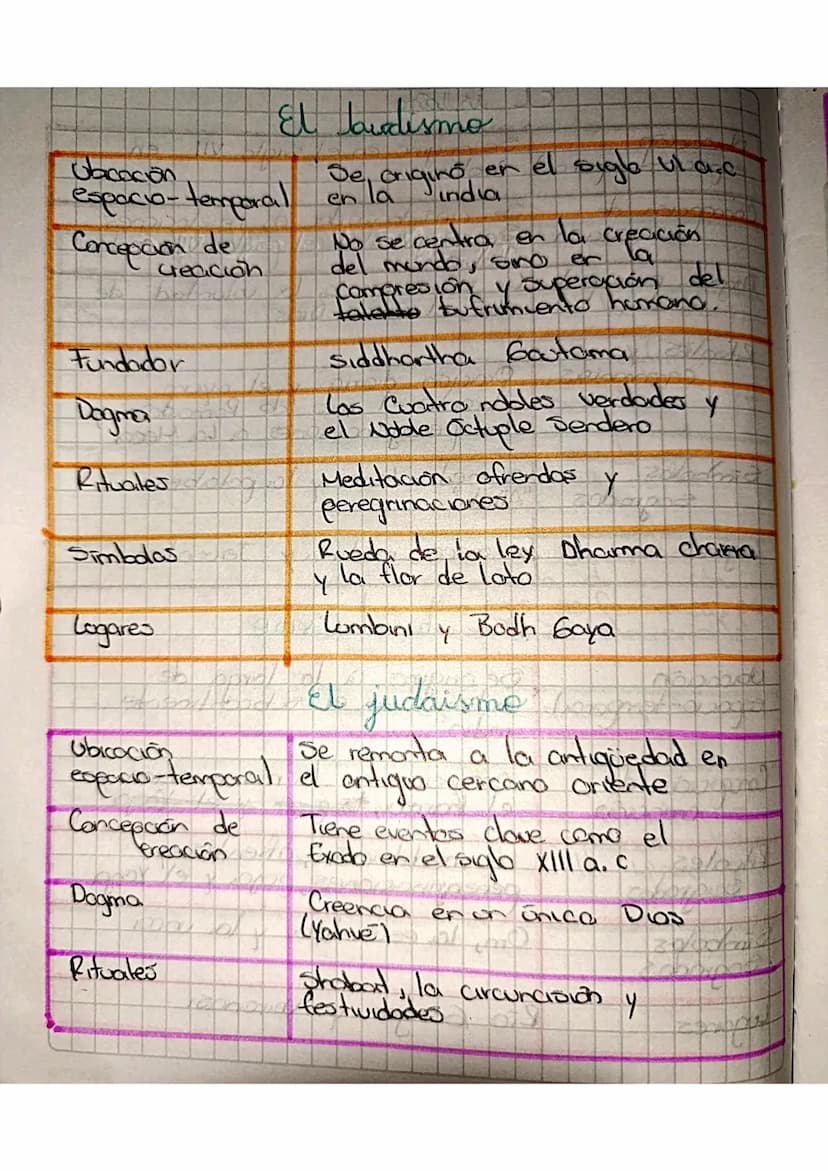 El budismo
Ubicación
espacio-temporal
Se originó en el siglo VI a.c
en la India
Concepción de
creación
No se centra en la creación
del mundo, sino en la
compresión y superación del
sufrimiento humano.
Fundador
Siddhartha Gautama
Dogma
Las Cuatro nobles verdades y
el Noble Óctuple Sendero
Rituales
Meditación ofrendas y
peregrinaciones
Simbolos
Rueda de la ley Dharma chakra
y la flor de loto
Logares
Lumbini y Bodh Gaya
El judaismo
Ubicación
espacio-temporal
Se remonta a la antigüedad en
el antiguo cercano oriente
Concepción de
creación
Tiene eventos clave como el
Exodo en el siglo XIII a. c
Dogma
Creencia en un único Dios
(Yahvé)
Rituales
Shabat, la circuncisión y
festividades